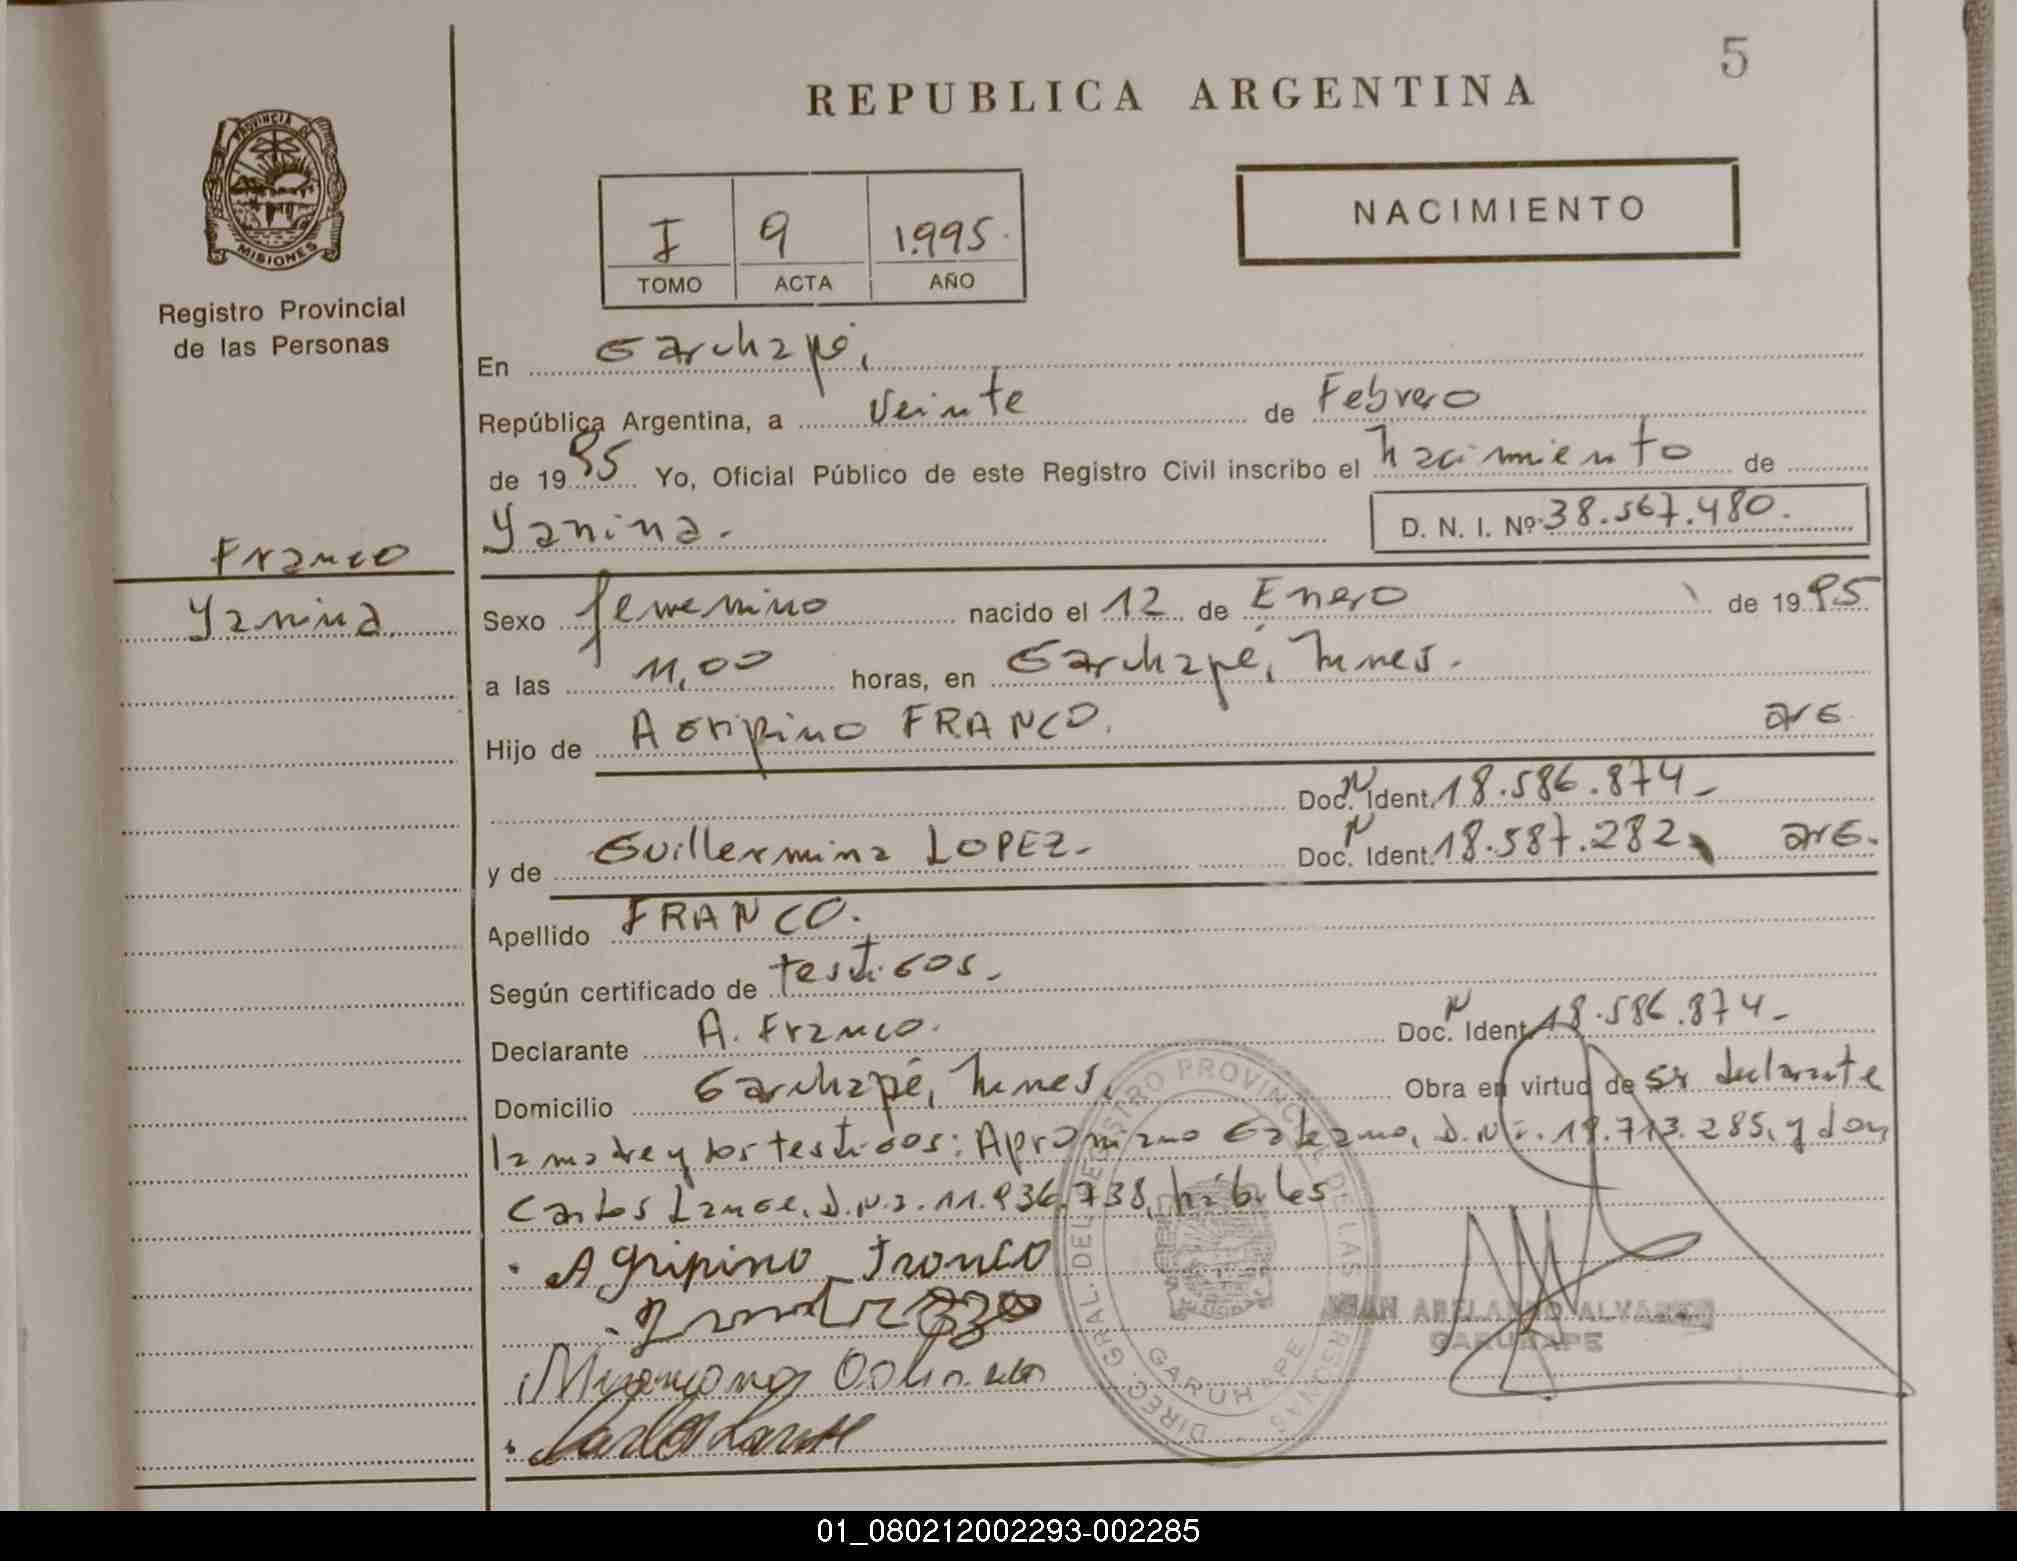 5
REPUBLICA ARGENTINA
PROVINCIA DE
MISIONES
Registro Provincial
de las Personas
NACIMIENTO
I 9 1.995.
TOMO ACTA AÑO
En Garuhapé,
República Argentina, a Veinte de Febrero
de 1995 Yo, Oficial Público de este Registro Civil inscribo el nacimiento de
Yanina. D. N. I. Nº 38.567.480.
Franco
Yanina
Sexo femenino nacido el 12 de Enero de 1995
a las 11,00 horas, en Garuhapé, Mnes.
Hijo de Agripino FRANCO. arg.
Doc. N Ident. 18.586.874-
y de Guillermina LOPEZ- Doc. N Ident. 18.587.282 arg.
Apellido FRANCO.
Según certificado de testigos.
Declarante A. Franco. Doc. N Ident. 18.586.874-
Domicilio Garuhapé, Mnes, Obra en virtud de ser declarante
la madre y los testigos: Galeano, D.N.I. 18.713.285, y don
Carlos Lange, D.N.I. 11.936.738, hábiles
Agripino Franco
DIREC. GRAL. DEL REGISTRO PROVINCIAL DE LAS PERSONAS
GARUHAPE
ABELARDO ALVAREZ
GARUHAPE
01_080212002293-002285